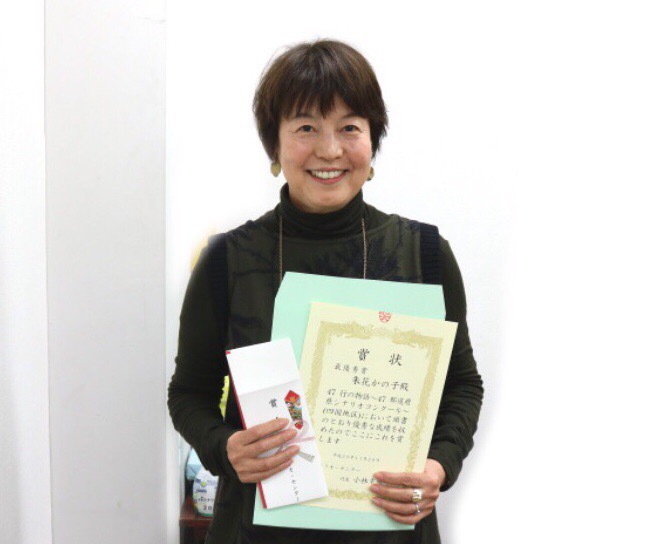 賞状
最優秀賞
朱花かの子殿
47行の物語〜47都道府
県シナリオコンクール〜
(四国地区)において頭書
のとおり優秀な成績を収
めたのでここにこれを賞
します
賞
センター